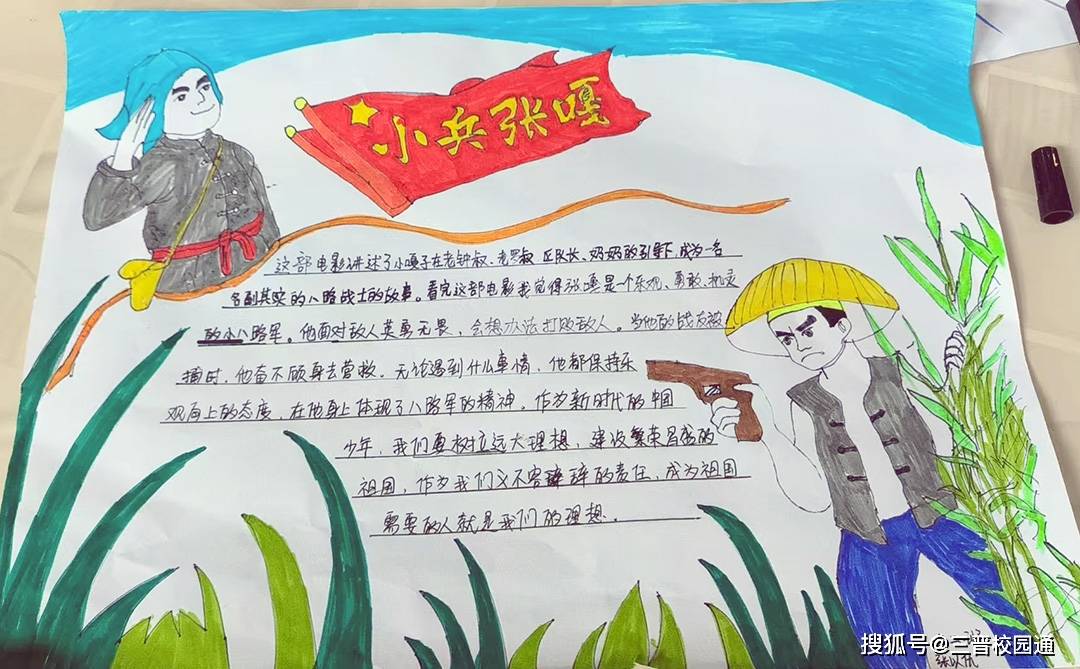 小兵张嘎
这部电影讲述了小嘎子在老钟叔、老罗叔 区队长、奶奶的引导下,成为一名
名副其实的八路战士的故事。看完这部电影我觉得张嘎是一个乐观、勇敢、机灵
的小八路军。他面对敌人英勇无畏,会想办法打败敌人。当他的战友被
捕时,他奋不顾身去营救。无论遇到什么事情,他都保持乐
观向上的态度,在他身上体现了八路军的精神。作为新时代的中国
少年,我们要树立远大理想,建设繁荣昌盛的
祖国,作为我们义不容辞的责任,成为祖国
需要的人就是我们的理想。
搜狐号@三晋校园通